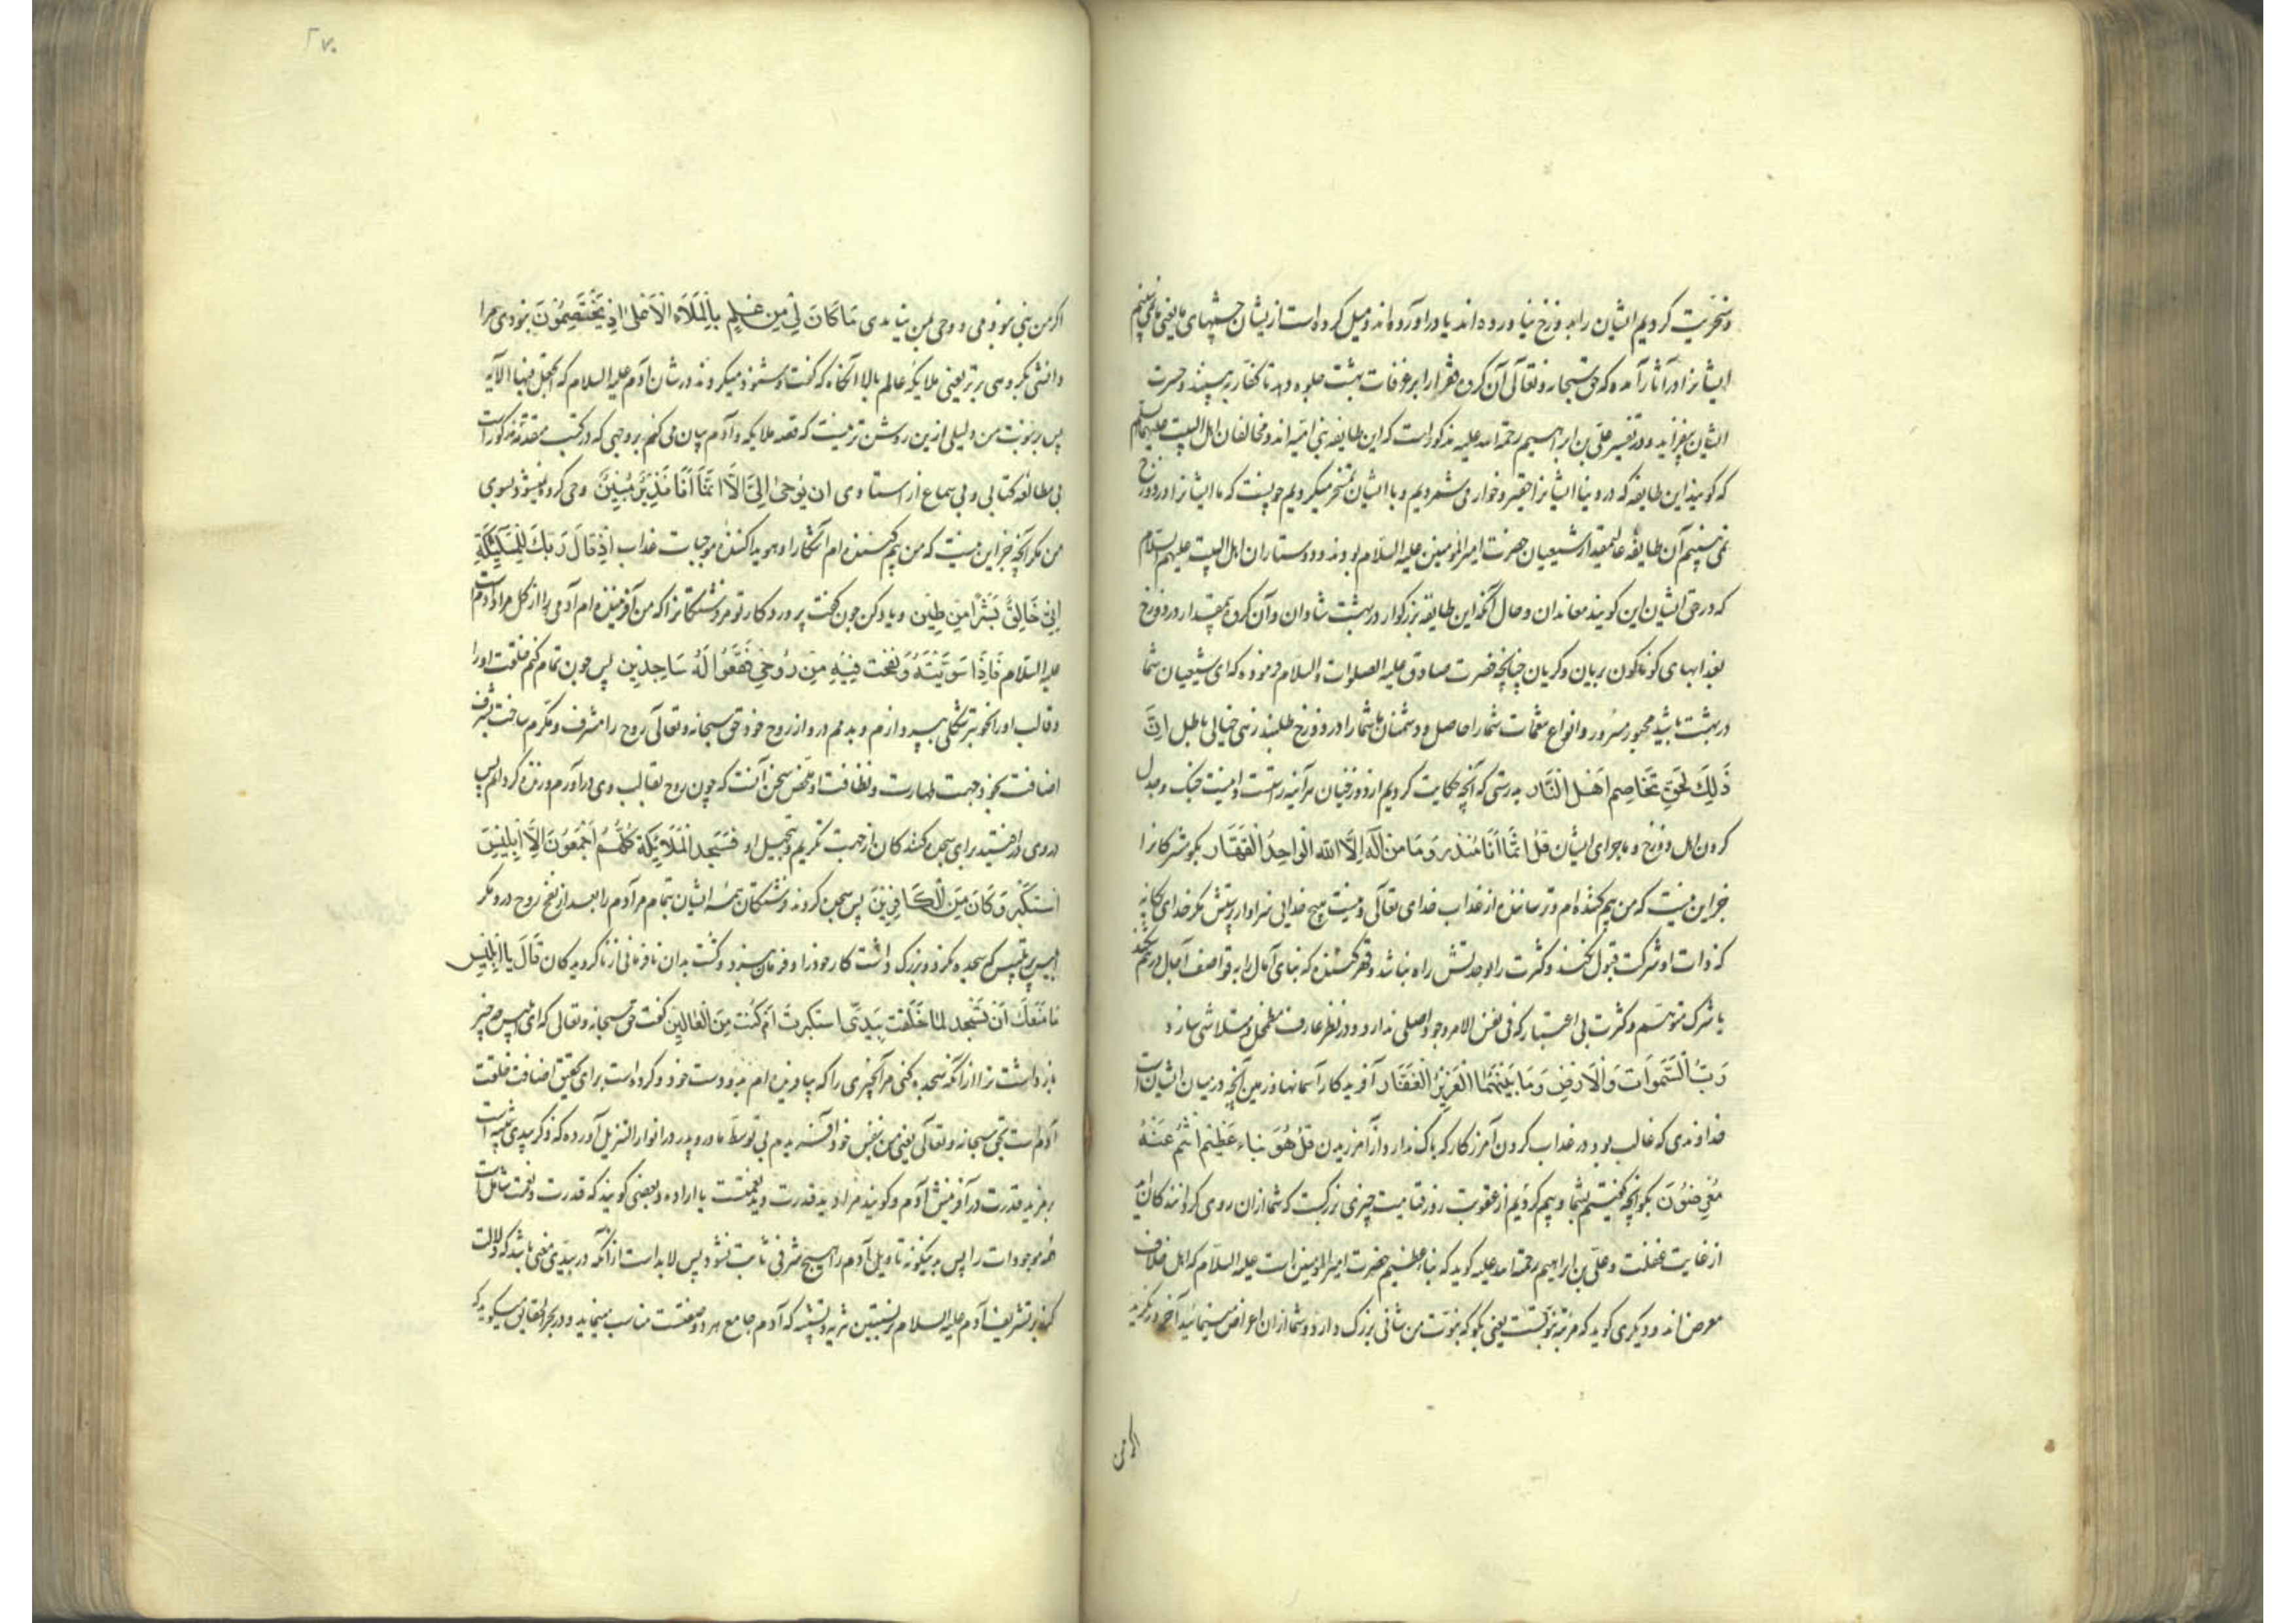 وسخریت کردیم ایشان را بدوزخ نیاورده‌اند یا درآورده‌اند و میل کرده است ازیشان چشمهای ما یعنی ما نمی‌بینیم
ایشانرا در آثار آمده که حق سبحانه و تعالی آن کروه فقرا را بر غرفات بهشت جلوه دهد تا کفار به بینند و حسرت
ایشان بیفزاید و در تفسیر علی بن ابراهیم رحمة الله علیه مذکور است که این طایفه بنی امیه‌اند و مخالفان اهل البیت علیهم السلام
که کویند این طایفه که در دنیا ایشانرا حقیر و خوار می‌شمردیم و با ایشان تمسخر میکردیم چونست که ما ایشانرا در دوزخ
نمی‌بینیم آن طایفهٔ عالیمقدار شیعیان حضرت امیرالمؤمنین علیه السلام بودند و دوستاران اهل البیت علیهم السلام
که در حق ایشان این کویند معاندان و حال آنکه این طایفه بزرکوار در بهشت شادان و آن کروه بیمقدار در دوزخ
بعذابهای کوناکون بریان و کریان چنانچه حضرت صادق علیه الصلوات والسلام فرموده که ای شیعیان شما
در بهشت باشید محبور مسرور و انواع نعمات شما را حاصل و دشمنان شما را در دوزخ طلبند زهی خیالی باطل اِنَّ
ذَلِكَ لَحَقٌّ تَخَاصُمِ اَهْلِ النَّار بدرستی که آنچه حکایت کردیم از دوزخیان هرآینه راستست و اینست جنک و جدل
کردن اهل دوزخ و ماجرای ایشان قُلْ اِنَّمَا اَنَا مُنْذِر وَمَا مِنْ اِلَهٍ اِلَّا اللّه الْوَاحِدُ الْقَهَّار بکو مشرکانرا
جز این نیست که من بیم کننده‌ام و ترساننده از عذاب خدای تعالی و نیست هیچ خدایی سزاوار پرستش مکر خدای یکانه
که ذات او شرکت قبول نکند و کثرت را بوحدتش راه نباشد و قهر کننده که بنای آمال را به قواصف آجال درهم شکند
با شرک متوهم و کثرت بی اعتبار که فی نفس الامر وجود اصلی ندارد و در نظر عارف مضمحل و متلاشی سازد
رَبُّ السَّمَوَاتِ وَالْاَرْضِ وَمَا بَيْنَهُمَا الْعَزِيزُ الْغَفَّار آفریدکار آسمانها و زمین و آنچه در میان ایشان است
خداوندی که غالب بود در عذاب کردن آمرزکار که باک ندارد از آمرزیدن قُلْ هُوَ نَبَاء عَظِيْم اَنْتُمْ عَنْهُ
مُعْرِضُوْنَ بکو آنچه کفتیم بشما و بیم کردیم از عقوبت روز قیامت چیزی بزرکست که شما از ان روی کردانندکان‌اید
از غایت غفلت و علی بن ابراهیم رحمة الله علیه کوید که نباء عظیم حضرت امیرالمؤمنین است علیه السلام که اهل خلاف
معرض‌اند و دیکری کوید که مرتبه نبوتست یعنی بکو که نبوت من شانی بزرک دارد و شما از ان اعراض مینمائید آخر درنکرید
اکر من
۲۷۰
اکر من نبی نبودمی و وحی بمن نیامدی مَا كَانَ لِيَ مِنْ عِلْمٍ بِالْمَلَاءِ الْاَعْلَى اِذْ يَخْتَصِمُوْنَ نبودی مرا
دانشی بکروهی برتر یعنی ملایکه عالم بالا آنکاه که کفت و شنود میکردند در شان آدم علیه السلام که اتجعل فیها الآیه
پس بر نبوت من دلیلی ازین روشن‌تر نیست که قصه ملایکه و آدم بیان می‌کنم بر وجهی که در کتب متقدمه مذکور است
بی مطالعه کتابی و بی سماع از استادی اِنْ يُوْحَى اِلَيَّ اِلَّا اَنَّمَا اَنَا نَذِيْرٌ مُبِيْنٌ وحی کرده نمیشود بسوی
من مکر آنچه جز این نیست که من بیم کننده‌ام آشکارا و هویدا کننده موجبات عذاب اِذْ قَالَ رَبُّكَ لِلْمَلٰئِكَةِ
اِنِّيْ خَالِقٌ بَشَرًا مِنْ طِيْنٍ و یاد کن چون کفت پروردکار تو مر فرشتکانرا که من آفریننده‌ام آدمی را از کل مراد آدم است
علیه السلام فَاِذَا سَوَّيْتُهُ وَنَفَخْتُ فِيْهِ مِنْ رُوْحِيْ فَقَعُوْا لَهُ سَاجِدِيْن پس چون تمام کنم خلقت او را
و قالب او را بخوبتر شکلی بپردازم و بدمم درو از روح خود حق سبحانه و تعالی روح را مشرف و مکرم ساخت بشرف
اضافت بخود جهت طهارت و نظافت او ملخص سخن آنست که چون روح بقالب وی درآورم و زنده کردانم پس
در وی درافتید برای سجده کنندکان از جهت تکریم و تبجیل او فَسَجَدَ الْمَلَائِكَةُ كُلُّهُمْ اَجْمَعُوْنَ اِلَّا اِبْلِيْسَ
اسْتَكْبَرَ وَكَانَ مِنَ الْكَافِرِيْنَ پس سجده کردند فرشتکان همه ایشان بتمام مر آدم را بعد از نفخ روح درو مکر
ابلیس پرتلبیس که سجده نکرد و بزرک داشت کار خود را و فرمان نبرد و کشت بدان نافرمانی از ناکرویدکان قَالَ يَا اِبْلِيْسُ
مَا مَنَعَكَ اَنْ تَسْجُدَ لِمَا خَلَقْتُ بِيَدَيَّ اَسْتَكْبَرْتَ اَمْ كُنْتَ مِنَ الْعَالِيْنَ کفت حق سبحانه و تعالی که ای ابلیس چه چیز
بازداشت ترا از آنکه سجده کنی مر آنچیزی را که بیافریده‌ام بدو دست خود و کرده است برای تحقیق اضافت خلقت
آدم است بحق سبحانه و تعالی یعنی من بنفس خود آفریدم بی توسط مادر و پدر در انوار التنزیل آورده که ذکر بیدی تثنیه است
بر مزید قدرت در آفرینش آدم و کویند مراد ید قدرت و ید نعمتست یا اراده و بعضی کویند که قدرت و نعمت شامل است
همه موجودات را پس بدینکونه تاویل آدم را هیچ شرفی ثابت نشود پس لابد است از آنکه در بیدی معنی باشد که دلالت
کند بر تشریف آدم علیه السلام که آدم جامع هر دو صفتست مناسب مینماید و در بحر الحقایق میکوید که